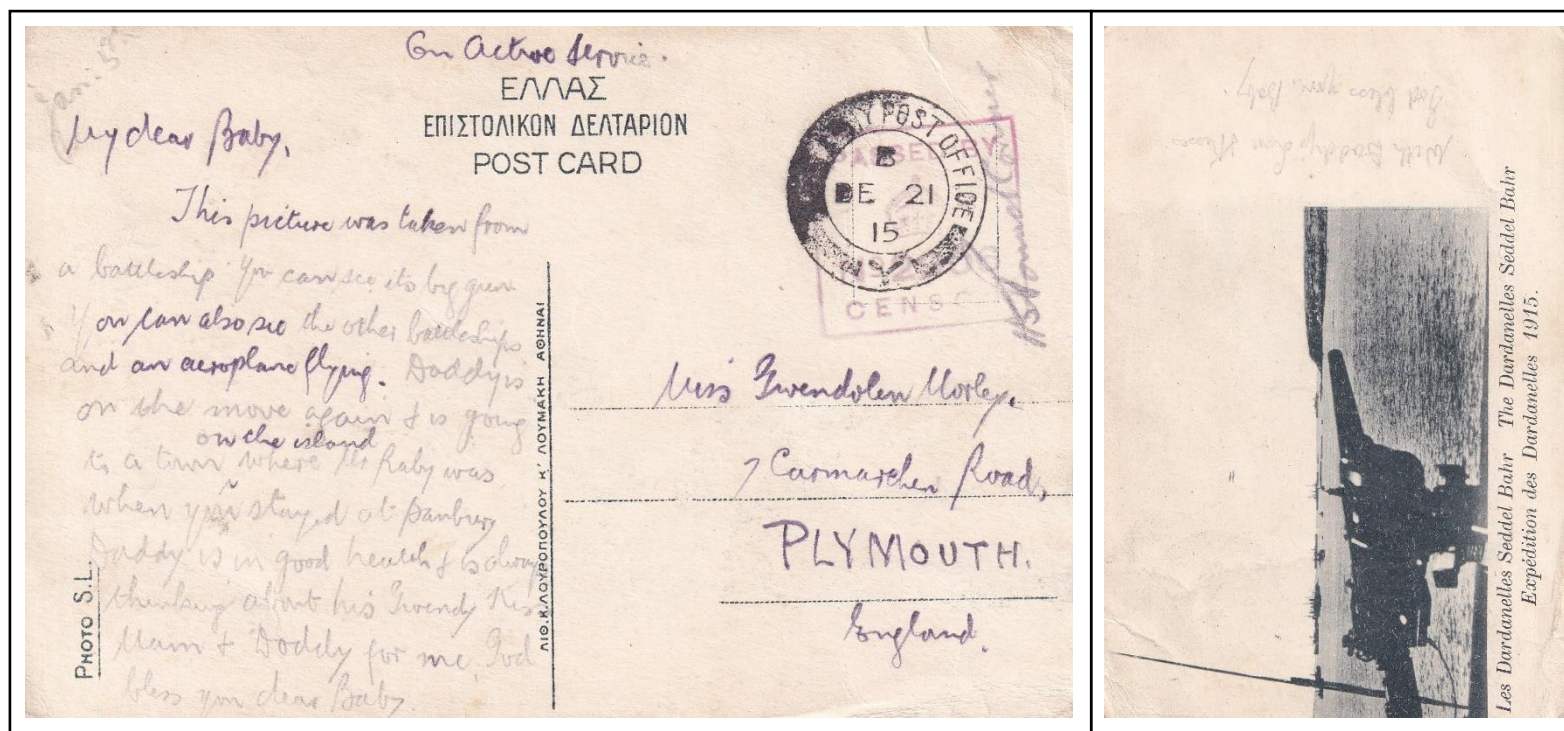 On Active Service.
ΕΛΛΑΣ
ΕΠΙΣΤΟΛΙΚΟΝ ΔΕΛΤΑΡΙΟΝ
POST CARD
My dear Baby,
This picture was taken from
a battleship You can see its big gun
You can also see the other battleships
and an aeroplane flying. Daddy is
on the move again & is going
on the island
to a town where Mr Raby was
when you stayed at Danbury
Daddy is in good health & is always
thinking about his Gwendy Kiss
Mam & Doddy for me. God
bless you dear Baby.
PHOTO S.L.
ΛΙΘ. Κ. ΛΟΥΡΟΠΟΥΛΟΥ Κ' ΛΟΥΜΑΚΗ ΑΘΗΝΑΙ
ARMY POST OFFICE
B
DE 21
15
PASSED BY
CENSO
Miss Gwendolen Morley.
7 Carmarthen Road,
PLYMOUTH.
England.
With Daddy's love & Kisses
God bless you, Baby.
Les Dardanelles Seddel Bahr The Dardanelles Seddel Bahr
Expédition des Dardanelles 1915.